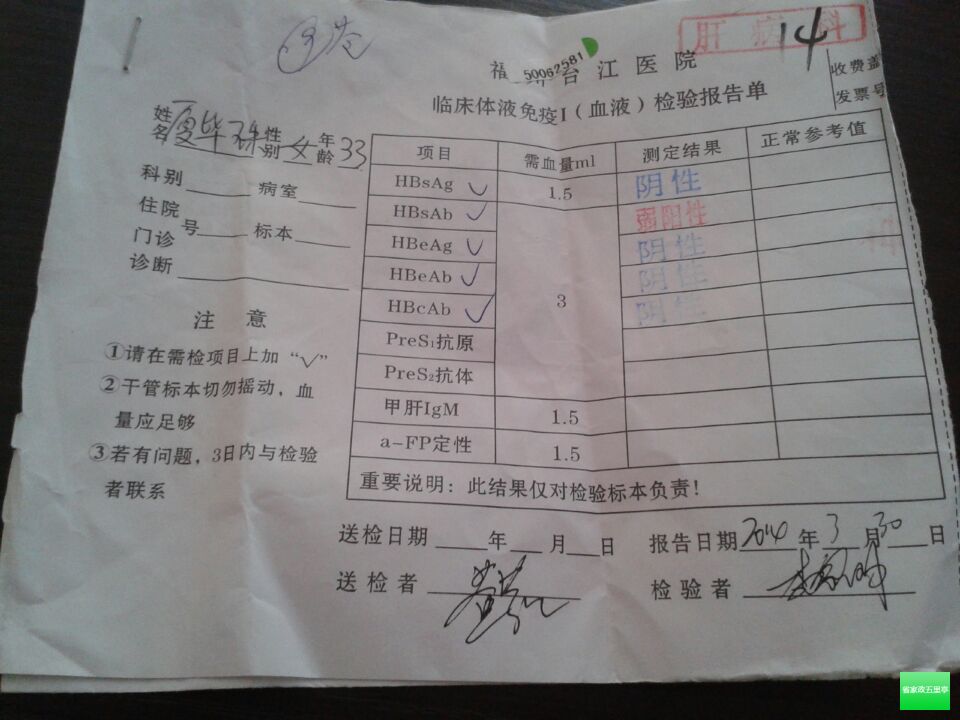 肝病科
14
50062581
福 州台江医院
收费盖
发票号
临床体液免疫I（血液）检验报告单
姓名 性别 女 年龄 33
科别 病室
住院
门诊 号 标本
诊断
注 意
①请在需检项目上加“√”
②干管标本切勿摇动，血
量应足够
③若有问题，3日内与检验
者联系
项目 需血量ml 测定结果 正常参考值
HBsAg √ 1.5 阴性
HBsAb √ 弱阳性
HBeAg √ 阴性
HBeAb √ 阴性
HBcAb √ 3 阴性
PreS₁抗原
PreS₂抗体
甲肝IgM 1.5
a-FP定性 1.5
重要说明：此结果仅对检验标本负责！
送检日期 年 月 日 报告日期 2014 年 3 月 30 日
送检者 检验者
省家政五里亭